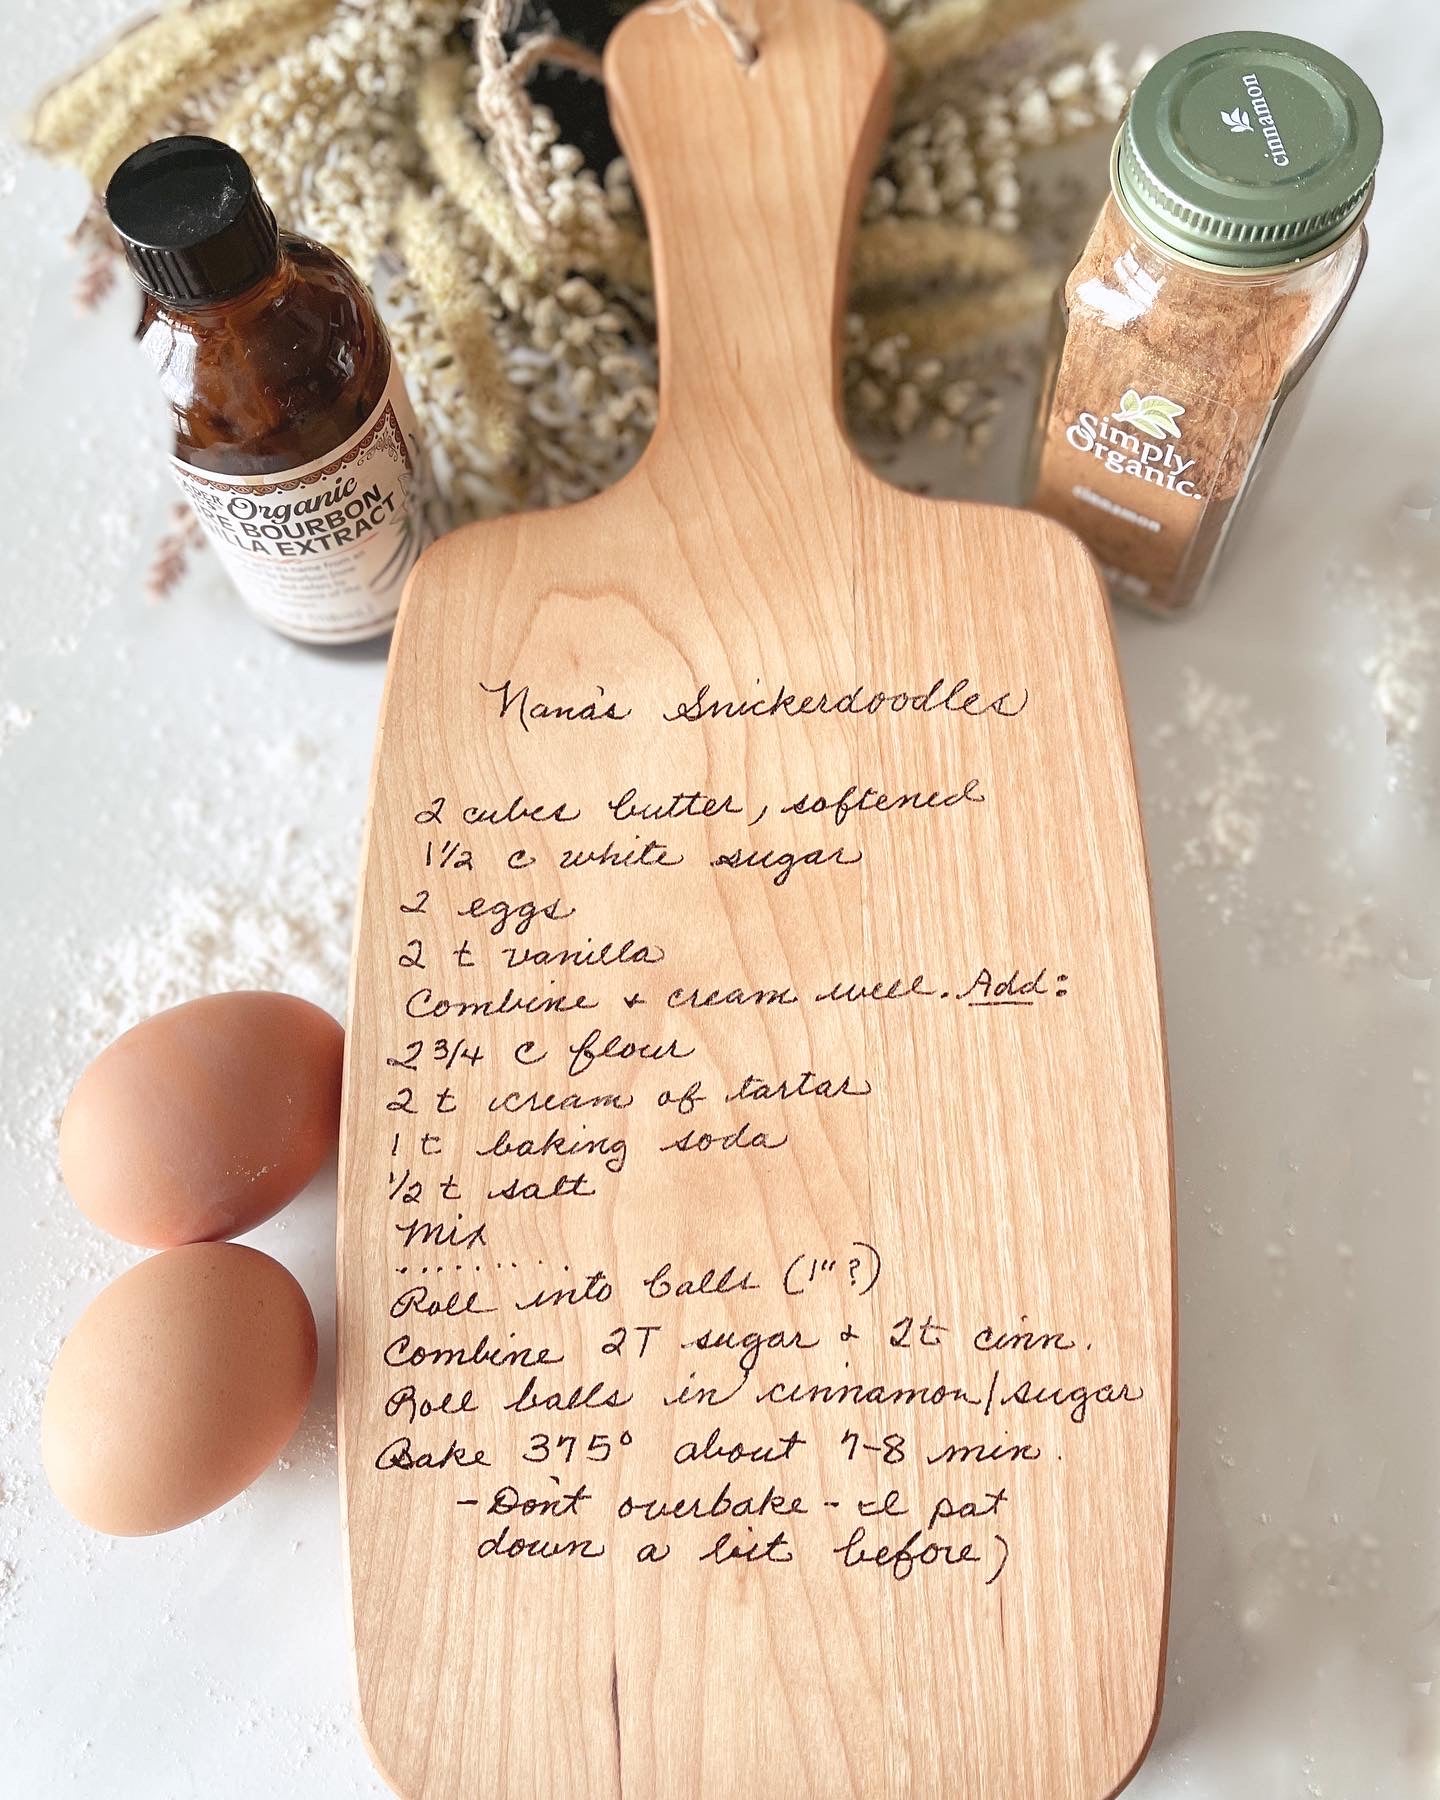 cinnamon
Simply
Organic.
cinnamon
Organic
BOURBON
EXTRACT
Nana's Snickerdoodles
2 cubes butter, softened
1 1/2 c white sugar
2 eggs
2 t vanilla
Combine & cream well. Add:
2 3/4 c flour
2 t cream of tartar
1 t baking soda
1/2 t salt
Mix
. . . . . . . . .
Roll into balls (1" ?)
Combine 2T sugar & 2t cinn.
Roll balls in cinnamon/sugar
Bake 375° about 7-8 min.
- Don't overbake - I pat
down a bit before)